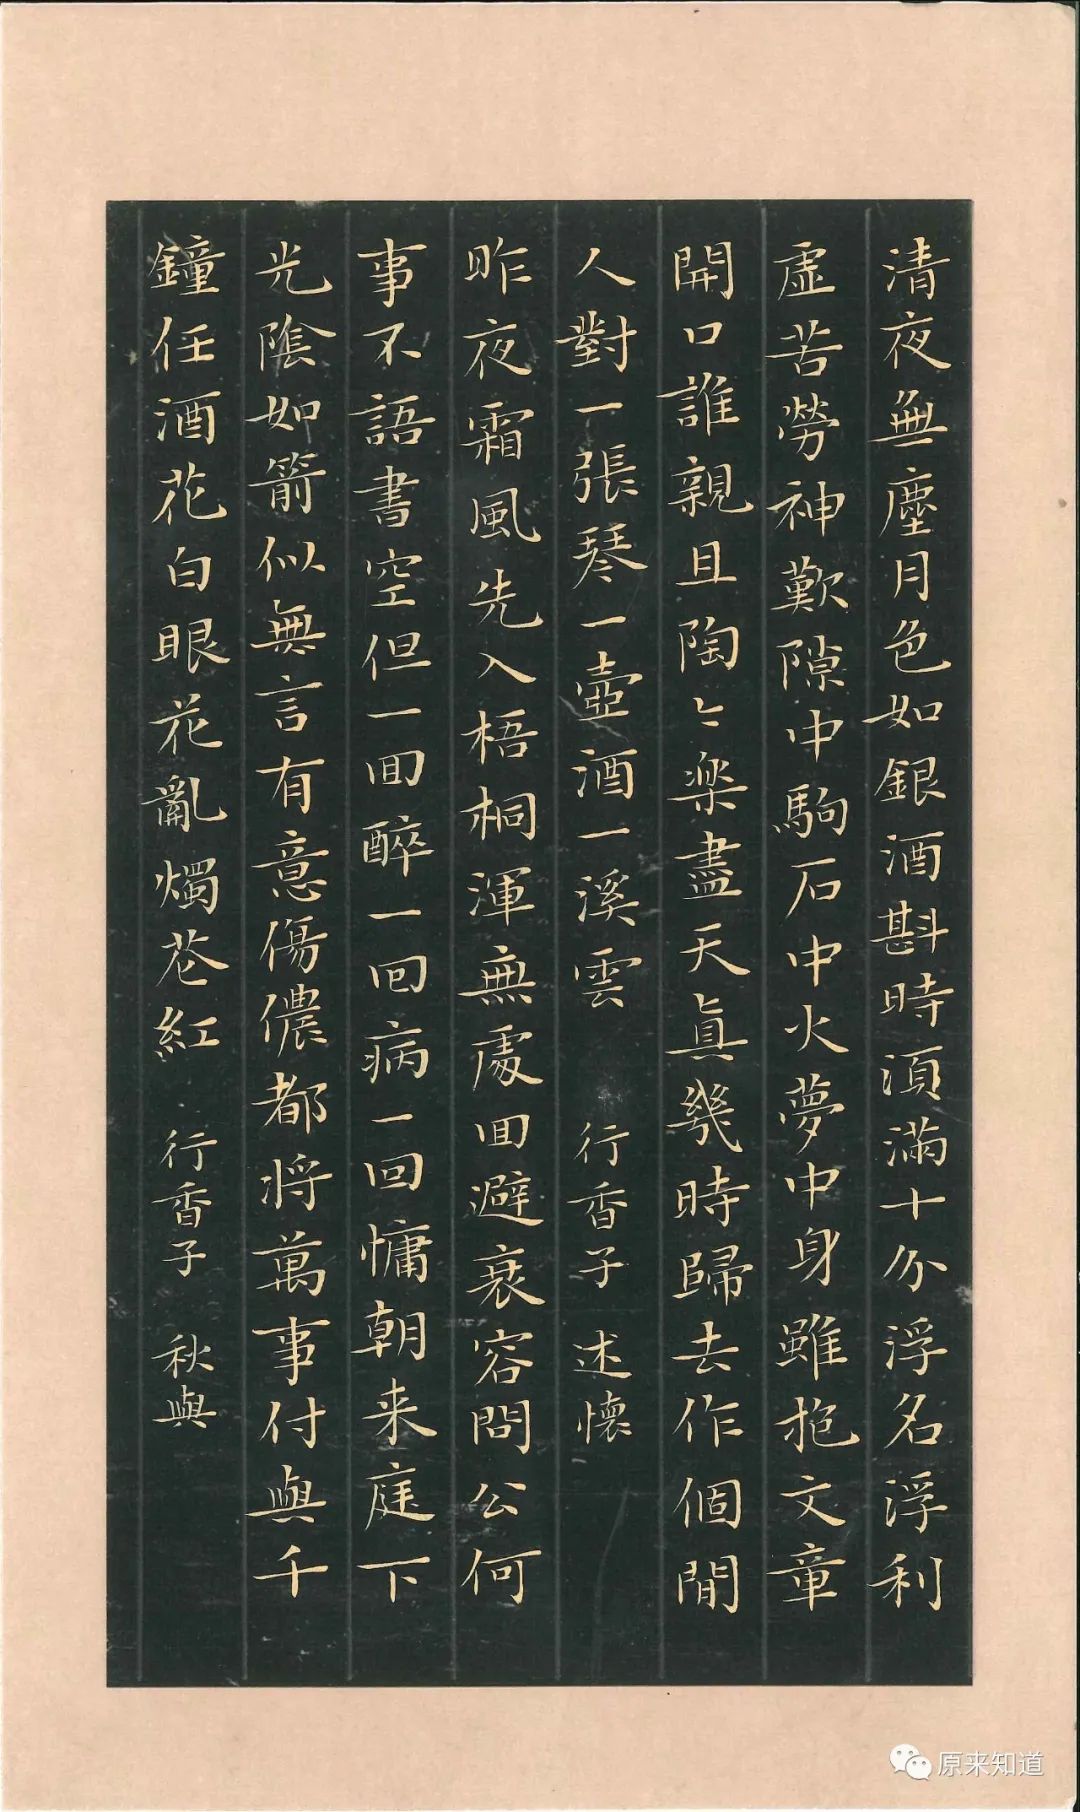 清夜無塵月色如銀酒斟時須滿十分浮名浮利
虛苦勞神歎隙中駒石中火夢中身雖抱文章
開口誰親且陶〻樂盡天真幾時歸去作個閒
人對一張琴一壺酒一溪雲 行香子 述懷
昨夜霜風先入梧桐渾無處回避衰容問公何
事不語書空但一回醉一回病一回慵朝来庭下
光陰如箭似無言有意傷儂都將萬事付與千
鐘任酒花白眼花亂燭花紅 行香子 秋與
原来知道